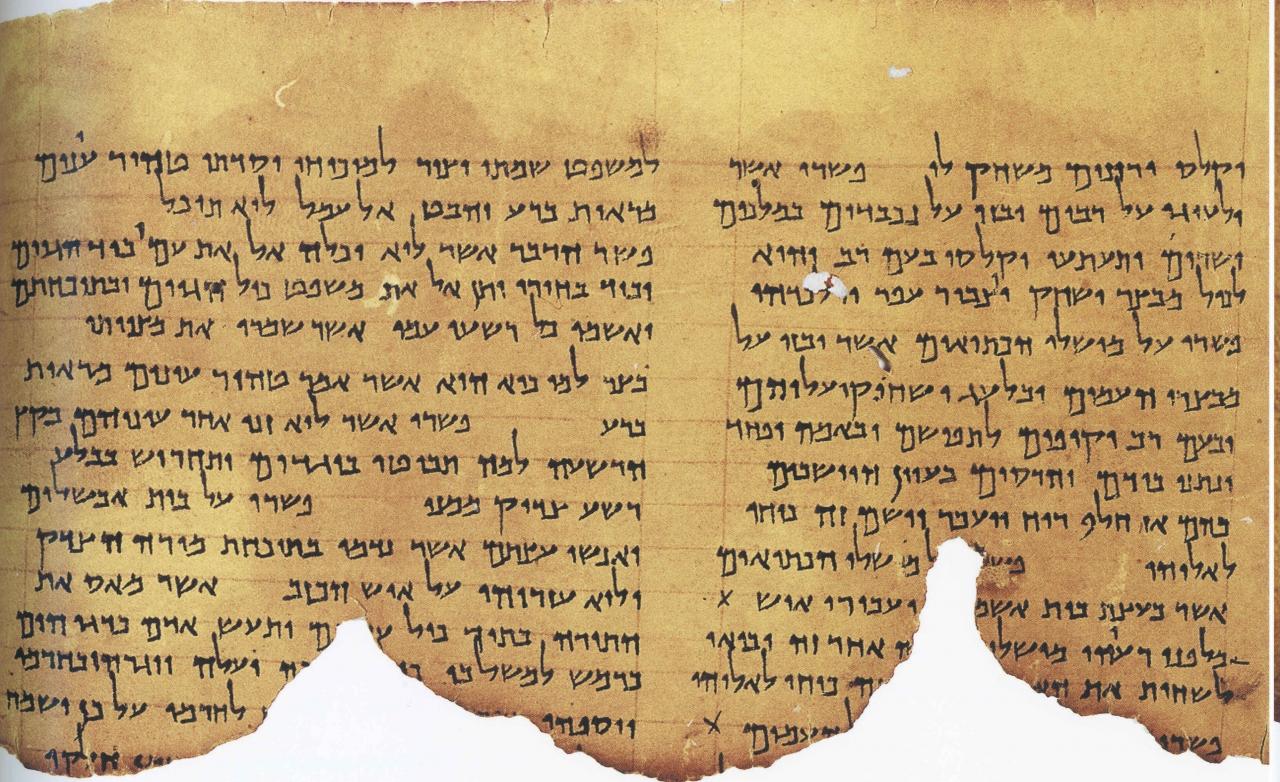 וקלס ורזנים משחק לו פשרו אשר
ילעיגו על רבים ובזו על נכבדים במלכים
ושרים יתעתעו וקלסו בעם רב והוא
לכול מבצר ישחק ויצבור עפר וילכדהו
פשרו על מושלי הכתיאים אשר יבזו על
מבצרי העמים ובלעג ישחוקו עליהם
ובעם רב יקיפום לתפושם ובאמה ופחד
ינתנו בידם והרסום בעוון היושבים
בהם אז חלף רוח ויעבר וישם זה כוחו
לאלוהו מושלי הכתיאים
אשר בעצת בית אשמ יעבורו איש X
מלפני רעיהו מושלי ה אחר זה יבואו
לשחית את הא ה כוחו לאלוהו
פשרו העמים X
למשפט שמתו וצור למוכיחו יסדתו טהור עינים
מראות ברע והבט אל עמל לוא תוכל
פשר הדבר אשר לוא יכלה אל את עמו ביד הגוים
וביד בחירו יתן אל את משפט כול הגוים ובתוכחתם
יאשמו כל רשעי עמו אשר שמרו את מצוותו
בצר למו כיא הוא אשר אמר טהור עינים מראות
ברע פשרו אשר לוא זנו אחר עיניהם בקץ
הרשעה למה תביטו בוגדים ותחריש בבלע
רשע צדיק ממנו פשרו על בית אבשלום
ואנשי עצתם אשר נדמו בתוכחת מורה הצדק
ולוא עזרוהו על איש הכזב אשר מאס את
התורה בתוך כול ע ם ותעש אדם כדגי הים
כרמש למשל בו ה יעלה ויגרהו בחרמו
ויספהו לחרמו על כן ישמח
חלקו